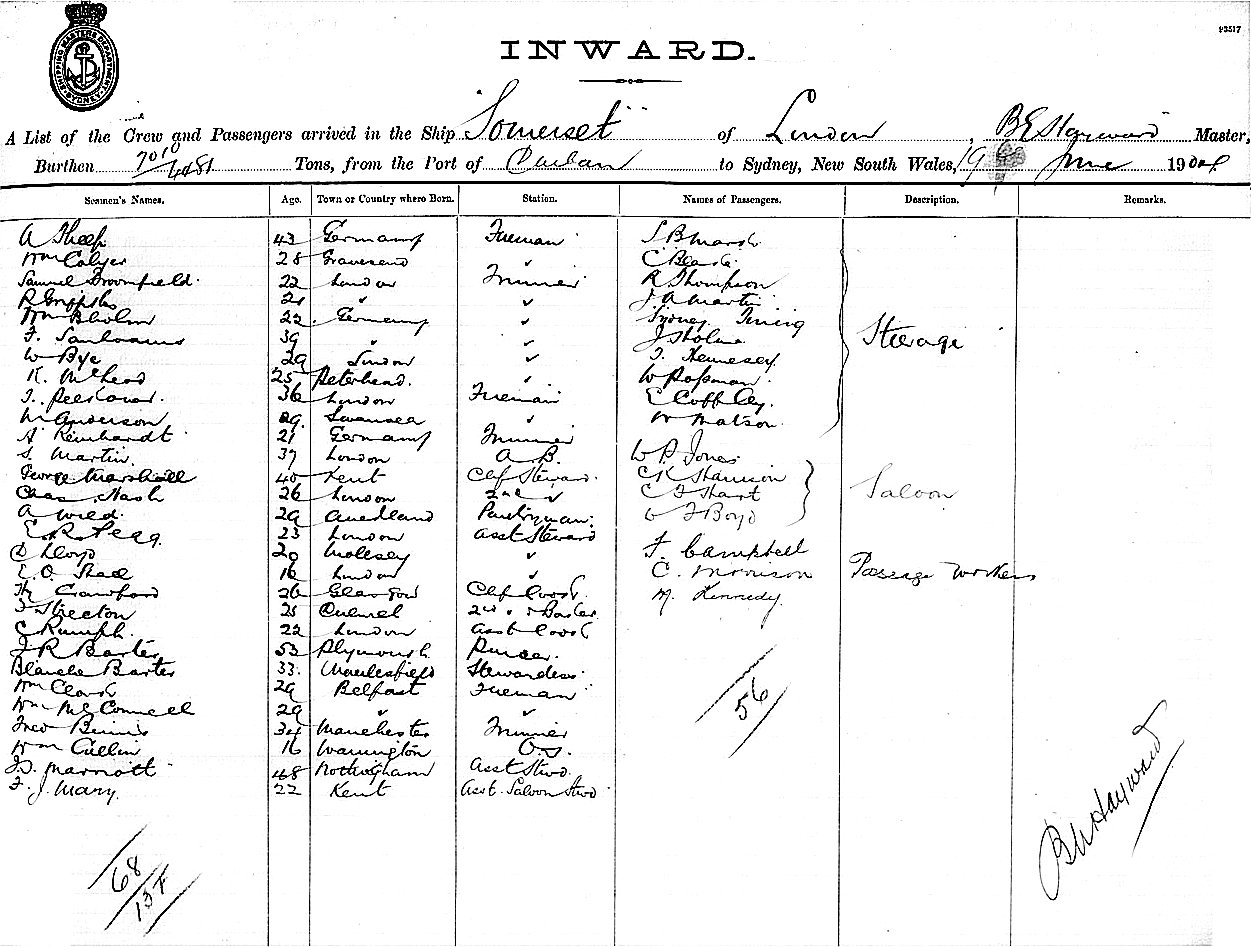 93517
SHIPPING MASTERS DEPARTMENT SYDNEY
INWARD.
A List of the Crew and Passengers arrived in the Ship "Somerset" of London, B E Hayward Master,
Burthen 7010/4481 Tons, from the Port of to Sydney, New South Wales, 19 June 1904
Seamen's Names. Age. Town or Country where Born. Station. Names of Passengers. Description. Remarks.
43 Germany Fireman S B Marsh
Wm Colyer 28 Gravesend ✓ C
Samuel Broomfield 22 London Trimmer R Thompson
R 21 " ✓ J A Martin
Wm 22 Germany ✓ Sydney
F. 39 " ✓ J Holme Steerage
W Bye 29 London ✓ T. Hennesey
K. McLeod 25 Peterhead. ✓ W Rossman
T. 36 London Fireman E
W Anderson 29 Swansea ✓ W Matson
A Reinhardt 21 Germany Trimmer
S. Martin 37 London A.B. W P Jones
George Marshall 40 Kent Chf Steward C K Harrison
Chas Nash 26 London 2nd ✓ C F Hart Saloon
A Wild 29 Auckland Pantryman W F Boyd
E. R. Pegg. 23 London Asst Steward
D Lloyd 20 Molesey ✓ F. Campbell
E. O. 16 London ✓ C. Morrison Passage Workers
Hy Crawford 26 Glasgow Chf Cook M. Kennedy
J Streeton 25 2nd " & Baker
C Rumph. 22 London Asst Cook
J R Barter 53 Plymouth Purser
Blanche Barter 33 Macclesfield Stewardess
Wm Clark 29 Belfast Fireman
Wm McConnell 29 " ✓ 56
Fred Binns 34 Manchester Trimmer
Wm Cullin 16 Warrington O.S.
Marriott 48 Nottingham Asst Stwd.
F. J. Mary. 22 Kent Asst. Saloon Stwd
B E Hayward
68